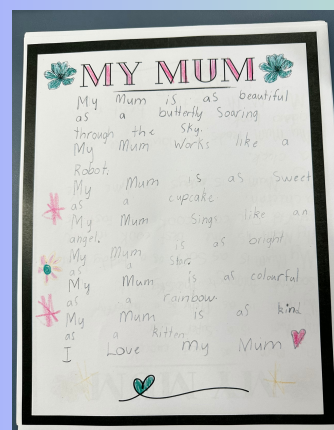 MY MUM
My Mum is as beautiful
as a butterfly Soaring
through the Sky.
My Mum Works like a
Robot.
My Mum is as Sweet
as a cupcake
My Mum Sings like an
angel.
My Mum is as bright
as a Star.
My Mum is as colourful
as a rainbow.
My Mum is as kind
as a kitten.
I Love my Mum